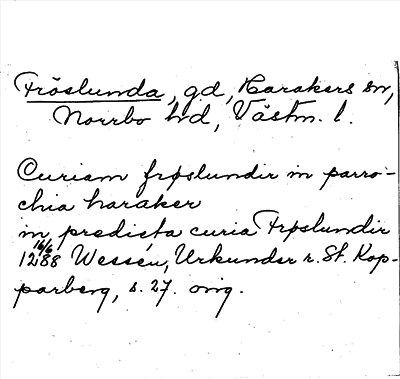 Fröslunda, gd, Harakers sn,
Norrbo hd, Västm. l.
Curiam frøslundir in parro-
chia haraker
in predista curia Frøslundir
16/6
1288 Wessén, Urkunder r. St. Kop-
parberg, s. 27. orig.